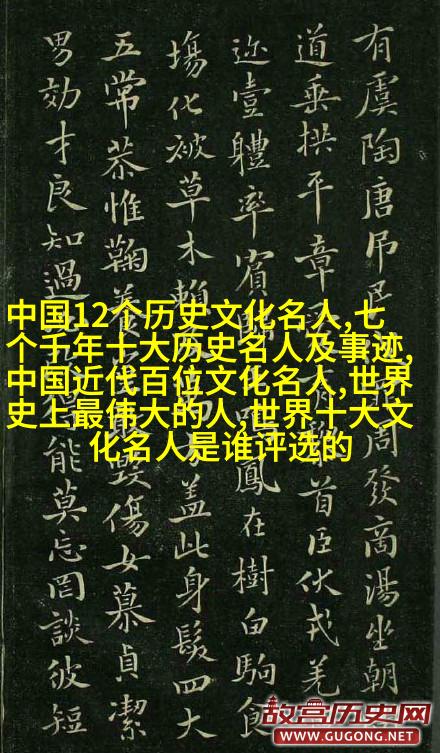 有虞陶唐吊周發商湯坐朝
道垂拱平章首臣伏戎羌
迩壹體率賓鳳在樹白駒食
場化被草木賴蓋此身髮四大
五常恭惟鞠養毀傷女慕貞潔
男効才良知過能莫忘罔談彼短
中国12个历史文化名人,七
个千年十大历史名人及事迹,
中国近代百位文化名人,世界
史上最伟大的人,世界十大文
化名人是谁评选的
故宫历史网
WWW.GUGONG.NET